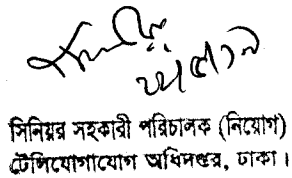 সিনিয়র সহকারী পরিচালক (নিয়োগ)
টেলিযোগাযোগ অধিদপ্তর, ঢাকা।